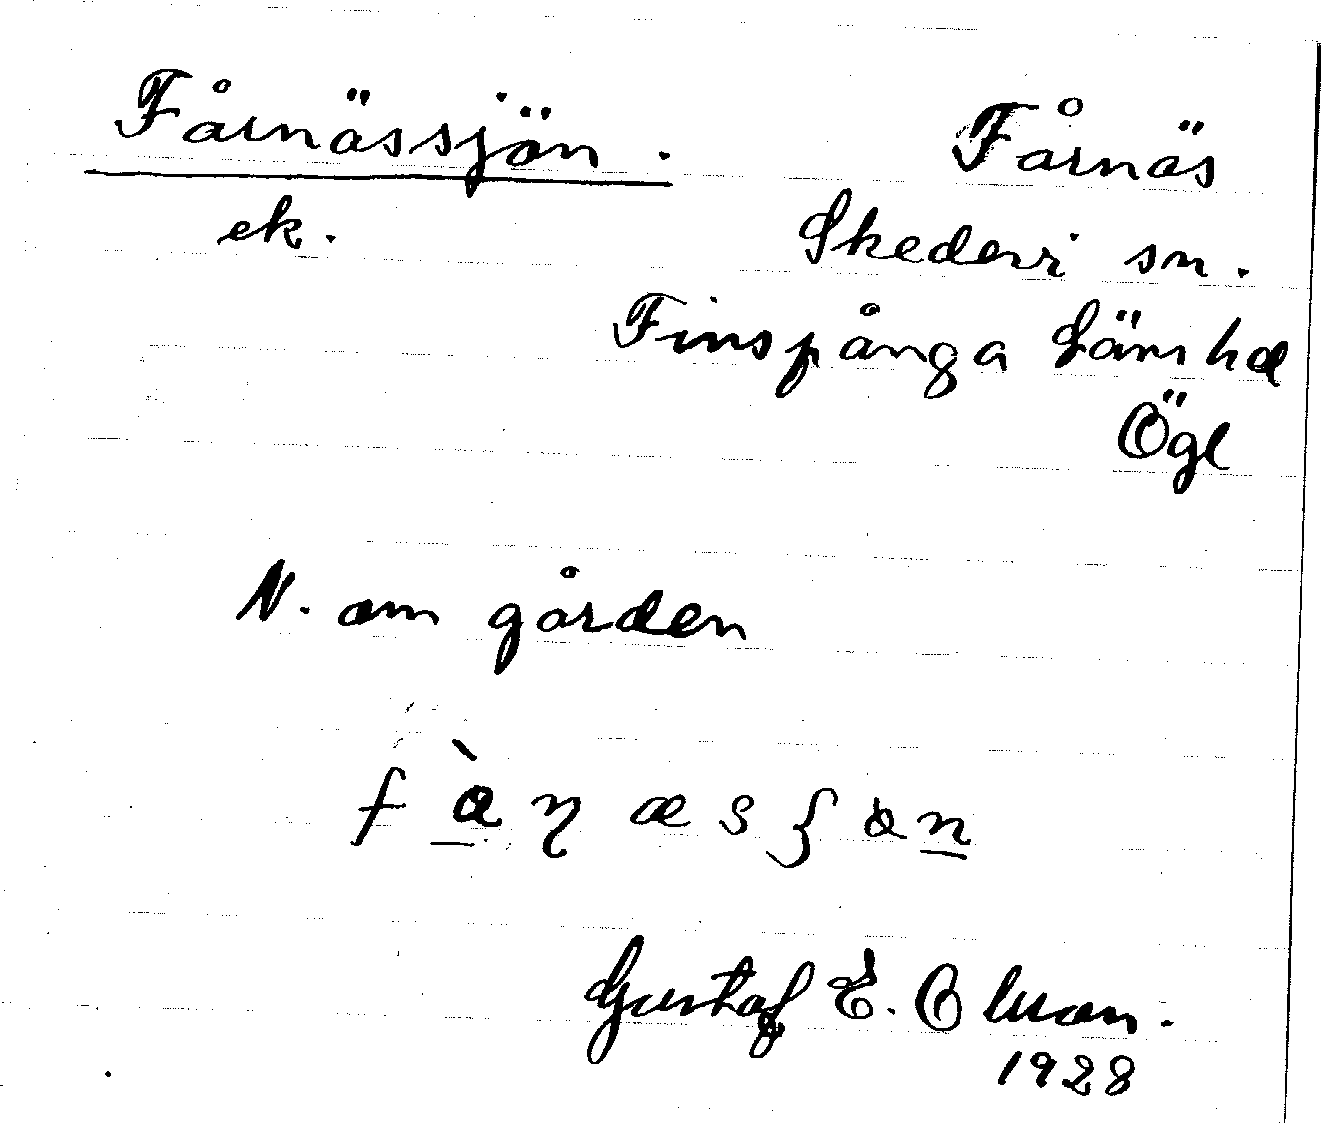 Fårnässjön.
ek.
Fårnäs
Skedevi sn.
Finspånga Läns hd
Ögl
N. om gården
Gustaf E. Olsson.
1928